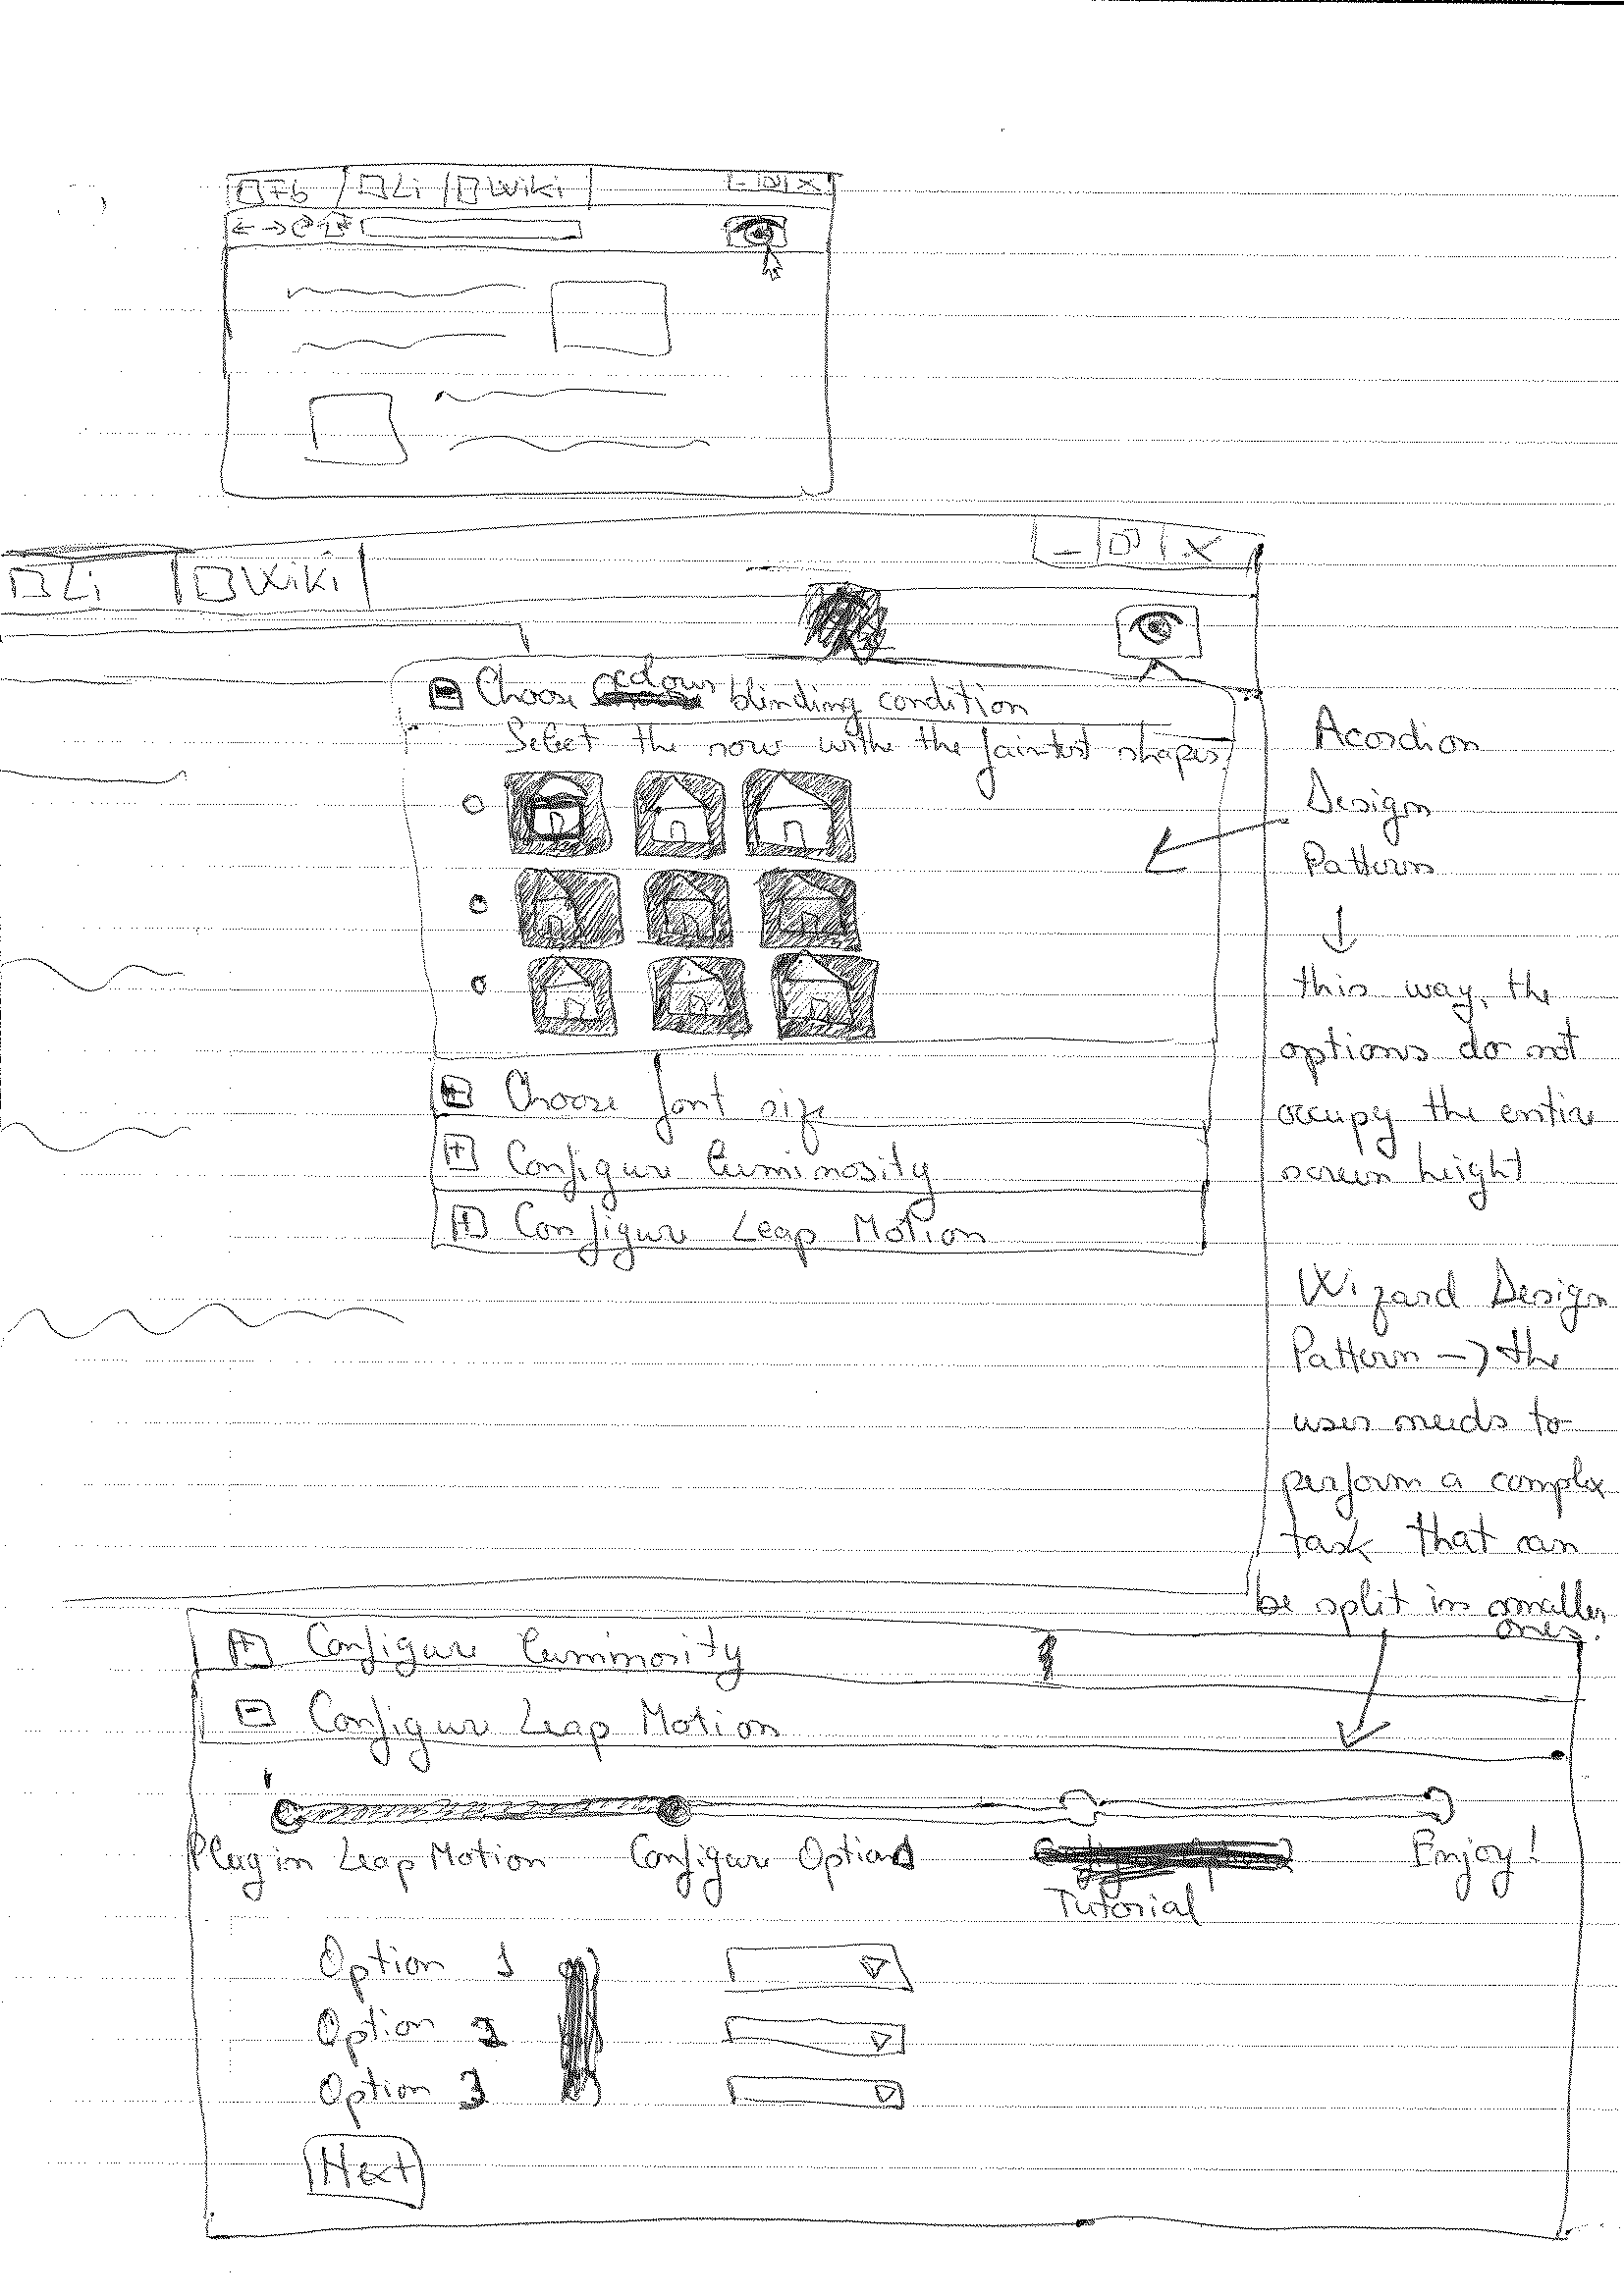 Fb Li Wiki
Li Wiki
Choose colour blinding condition
Select the row withe the faintest shapes.
Choose font size
Configure luminosity
Configure Leap Motion
Acordion
Design
Pattern
this way, the
options do not
occupy the entire
screen height
Wizard Design
Pattern → the
user needs to
perform a complex
task that can
be split in smaller
ones.
Configure luminosity
Configure Leap Motion
Plug in Leap Motion Configure Options Enjoy!
Tutorial
Option 1
Option 2
Option 3
Next